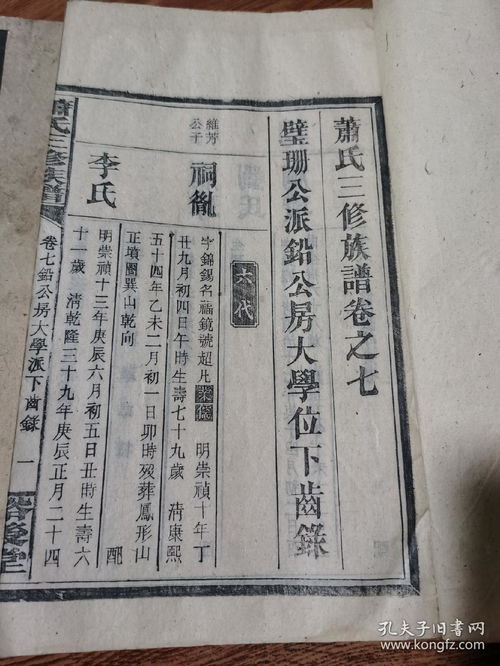 蕭氏三修族譜卷之七
璧珊公派鉛公房大學位下齒錄
六代
維芳
公子
祠胤
字錦錫名福鏡號超凡 明崇禎十年丁
丑九月初四日午時生壽七十九歲 清康熙
五十四年乙未二月初一日卯時歿葬鳳形山
正墳圖巽山乾向 配
李氏
明崇禎十三年庚辰六月初五日丑時生壽六
十一歲 清乾隆三十九年庚辰正月二十四
蕭氏三修族譜
卷七鉛公房大學派下齒錄
一
孔夫子旧书网
www.kongfz.com